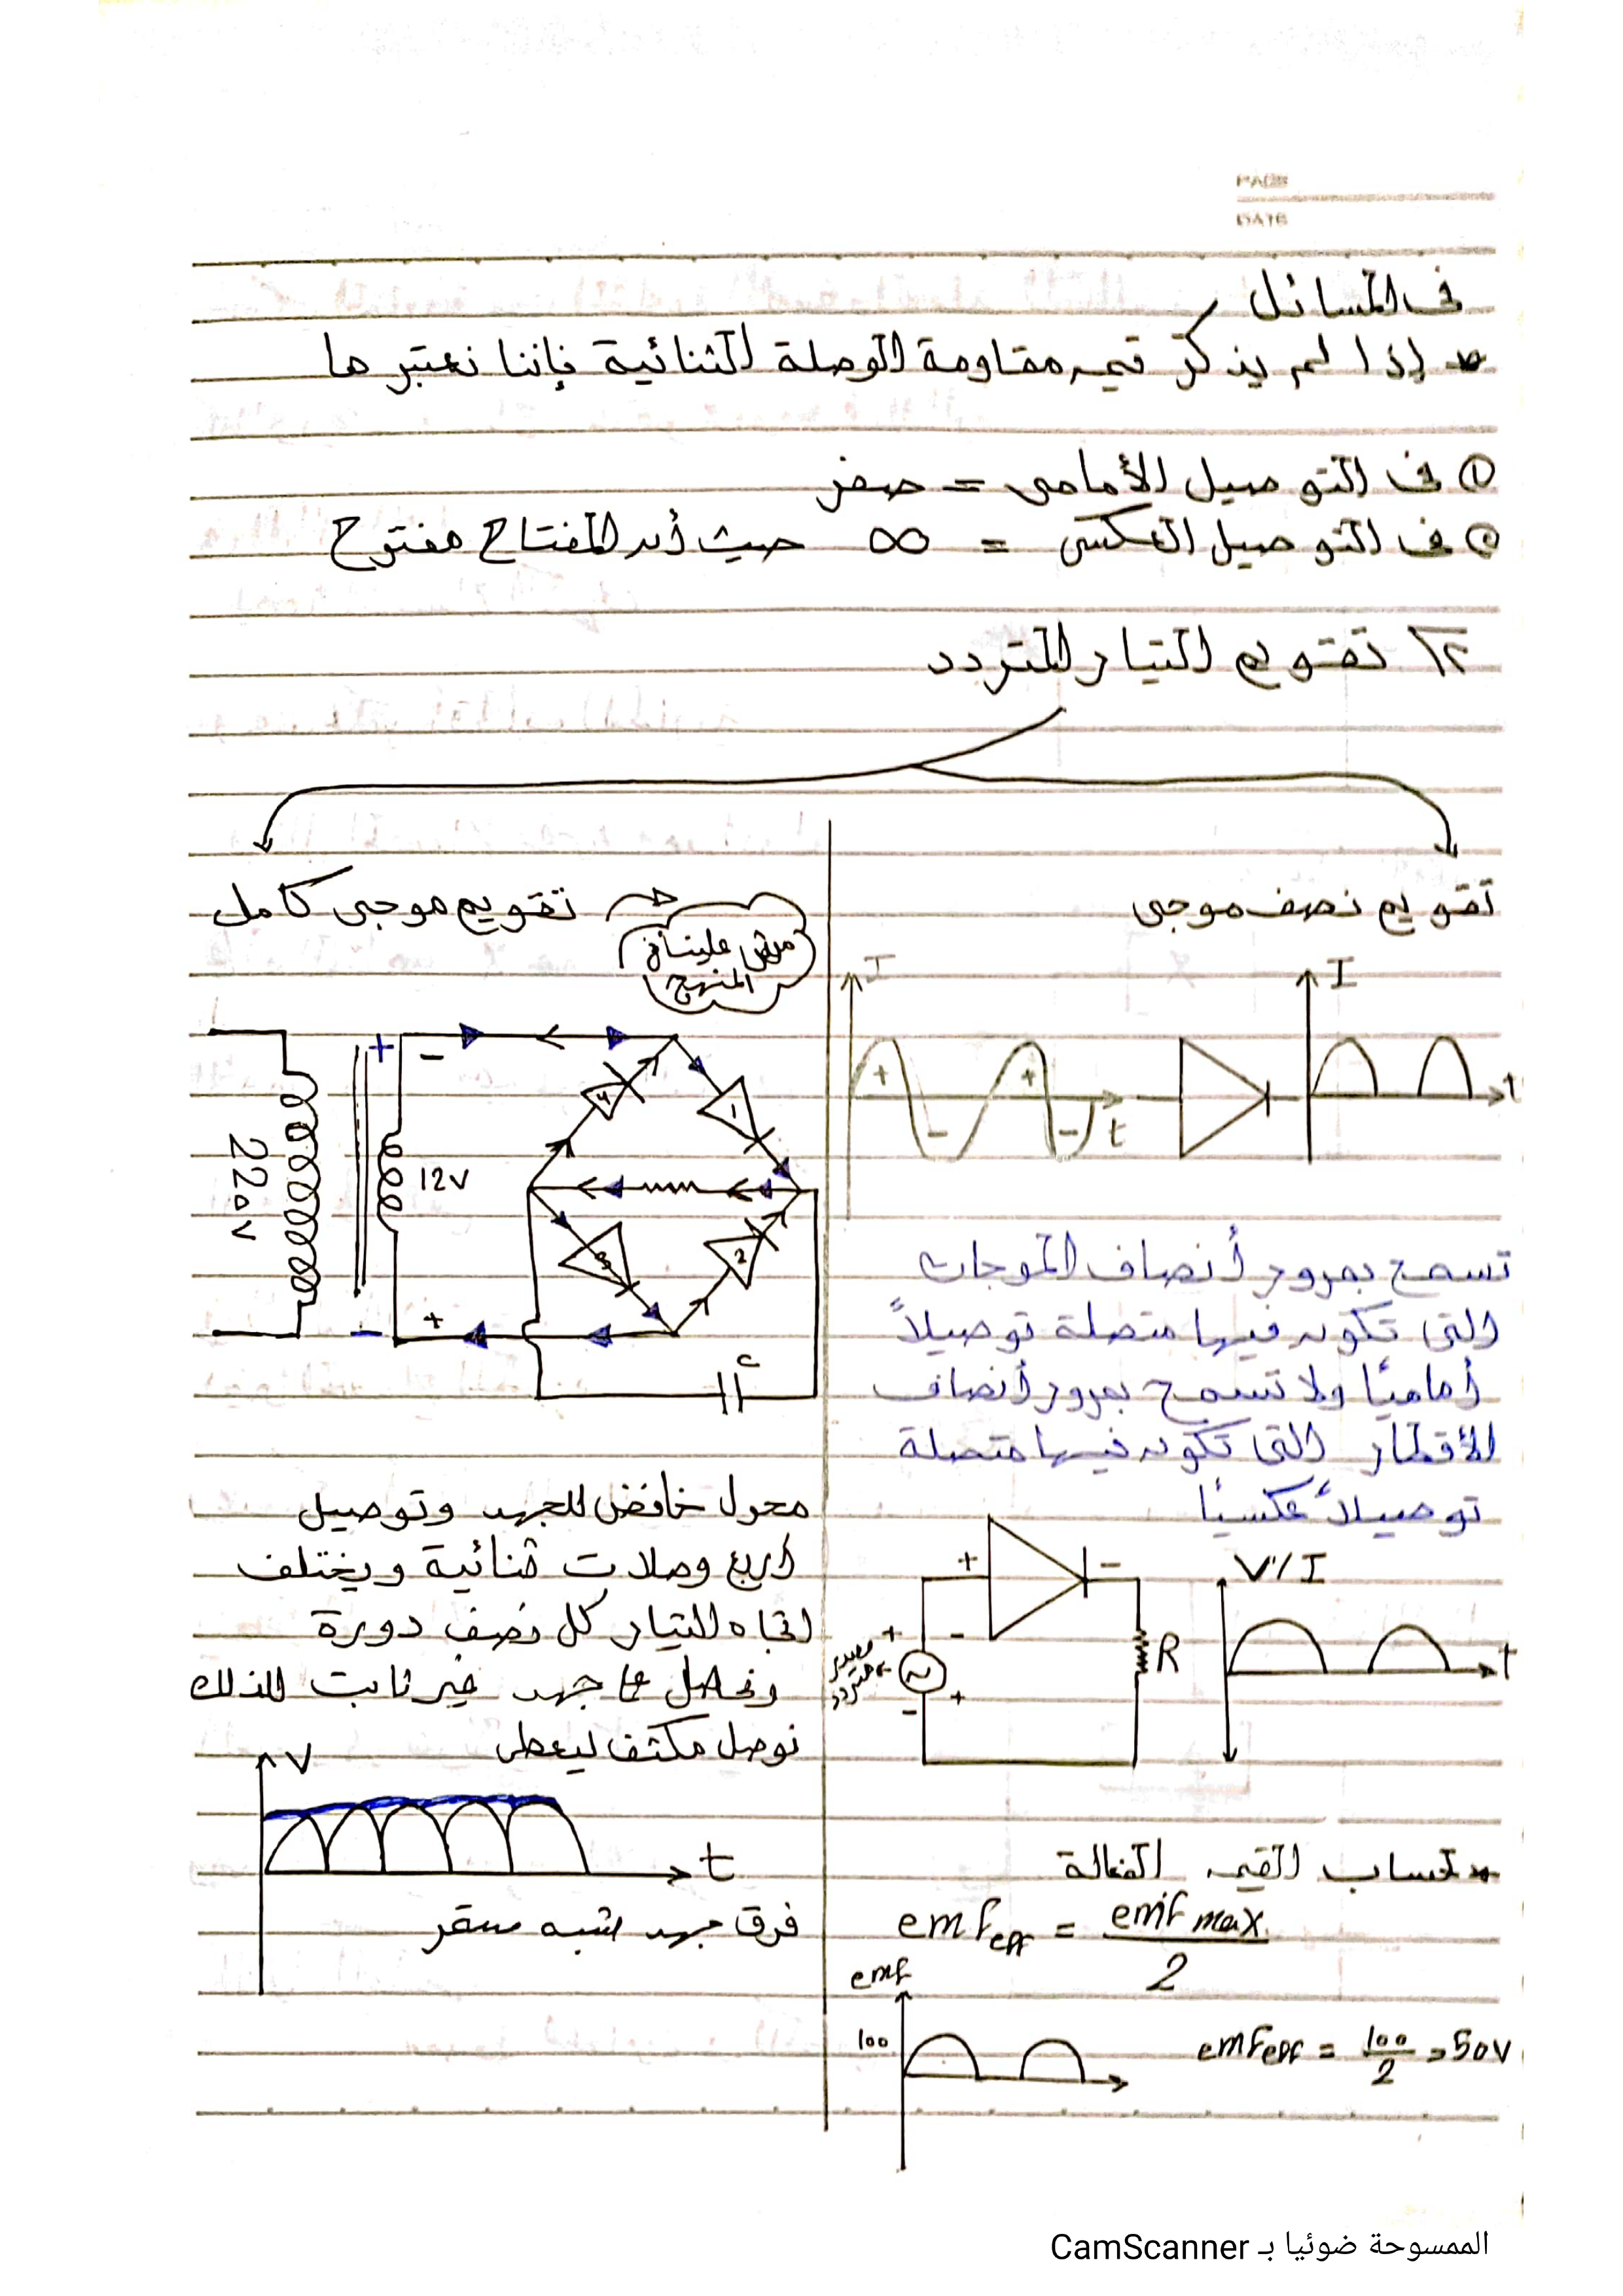 PAGE
DATE
فى المسائل
* إذا لم يذكر قيمه مقاومة الوصلة الثنائية فإننا نعتبرها
① فى التوصيل الأمامى = صفر
② فى التوصيل العكسى = ∞ حيث أنه المفتاح مفتوح
٢\ تقويم التيار المتردد
تقويم نصف موجى
I
I
+
-
+
-
t
t
تسمح بمرور أنصاف الموجات
التى تكون فيها متصلة توصيلاً
أماميًا ولا تسمح بمرور أنصاف
الأقطار التى تكون فيها متصلة
توصيلاً عكسيًا
+
-
+
-
-
+
مصدر
متردد
R
V/I
t
* لحساب القيمه الفعالة
emf eff = emf max / 2
emf
100
emf eff = 100/2 = 50V
تقويم موجى كامل
مش علينا فى
المنهج
220V
12V
+
-
-
+
4
1
3
2
محول خافض للجهد وتوصيل
أربع وصلات ثنائية ويختلف
اتجاه التيار كل نصف دورة
ونحصل على جهد غير ثابت لذلك
نوصل مكثف ليعطى
V
t
فرق جهد شبه مستقر
الممسوحة ضوئيا بـ CamScanner